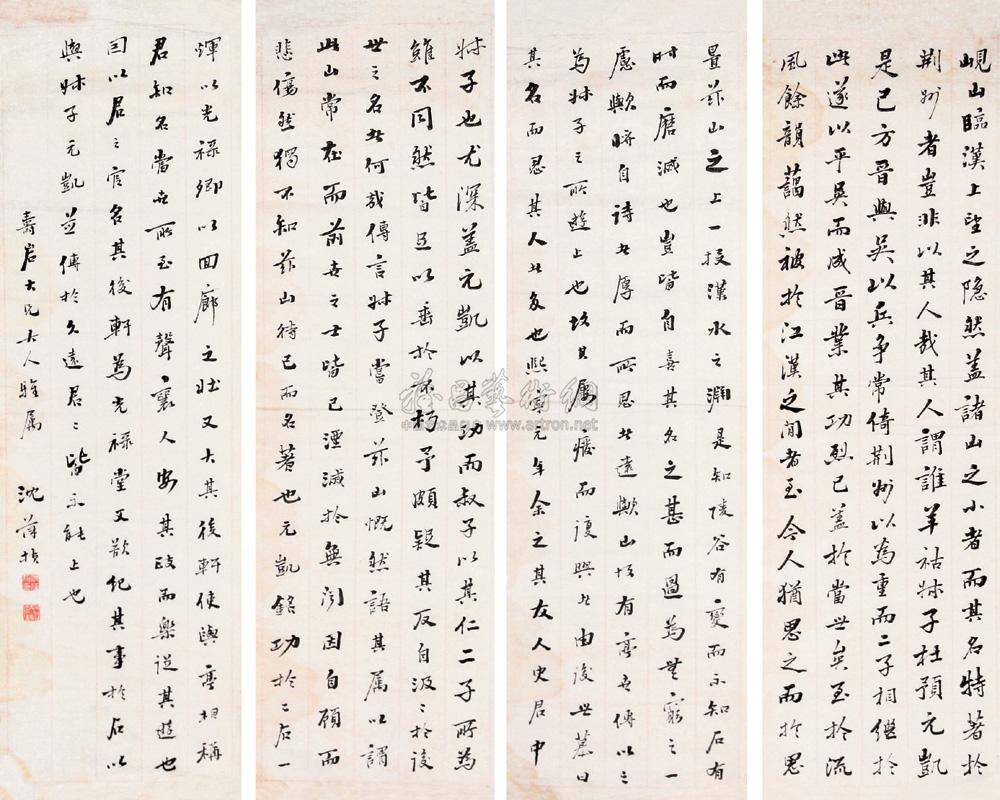 峴山臨漢上望之隱然蓋諸山之小者而其名特著於
荆州者豈非以其人哉其人謂誰羊祜叔子杜預元凱
是已方晉與吳以兵爭常倚荆州以為重而二子相繼於
此遂以平吳而成晉業其功烈已蓋於當世矣至於流
風餘韻藹然被於江漢之間者至今人猶思之而於思
置茲山之上一投漢水之淵是知陵谷有變而不知石有
時而磨滅也豈皆自喜其名之甚而過為無窮之一
慮歟將自待者厚而所思者遠歟山故有亭世傳以之
為叔子之所遊上也故其屢廢而復興者由後世慕曰
其名而思其人者多也熙寧元年余之其友人史君中
叔子也尤深蓋元凱以其功而叔子以其仁二子所為
雖不同然皆足以垂於不朽予頗疑其反自汲々於後
世之名者何哉傳言叔子嘗登茲山慨然語其屬以謂
此山常在而前世之士皆已湮滅於無聞因自顧而
悲傷然獨不知茲山待己而名著也元凱銘功於二石一
煇以光祿卿以回廊之壯又大其後軒使與亭相稱
君知名當世所至有聲襄人安其政而樂從其遊也
因以君之官名其後軒為光祿堂又欲紀其事於石以
與叔子元凱並傳於久遠君々皆不能止也
壽岩大兄大人雅屬 沈葆楨
雅昌藝術網
www.artron.net